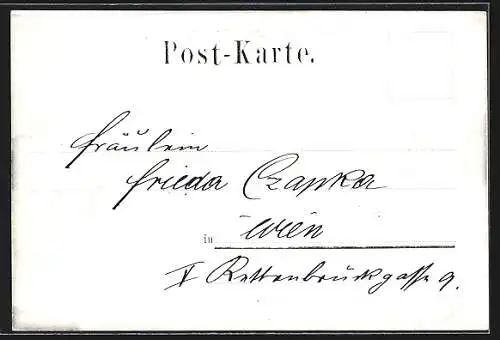 Post-Karte.
Fräulein
Frieda Czapka
in Wien
V Rettenbrückgasse 9.